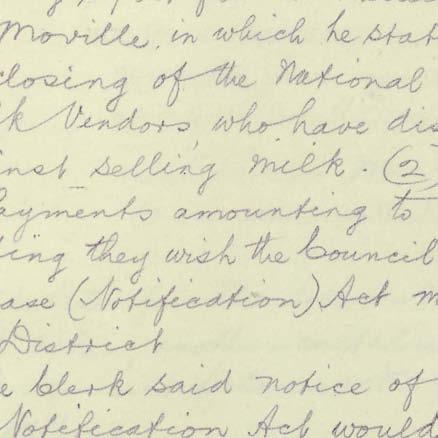 Moville, in which he stat
closing of the National
k Vendors, who have dis
inst selling milk. (2
ayments amounting to
ing they wish the Council
ase (Notification) Act m
District
e Clerk said notice of
Notification Act would